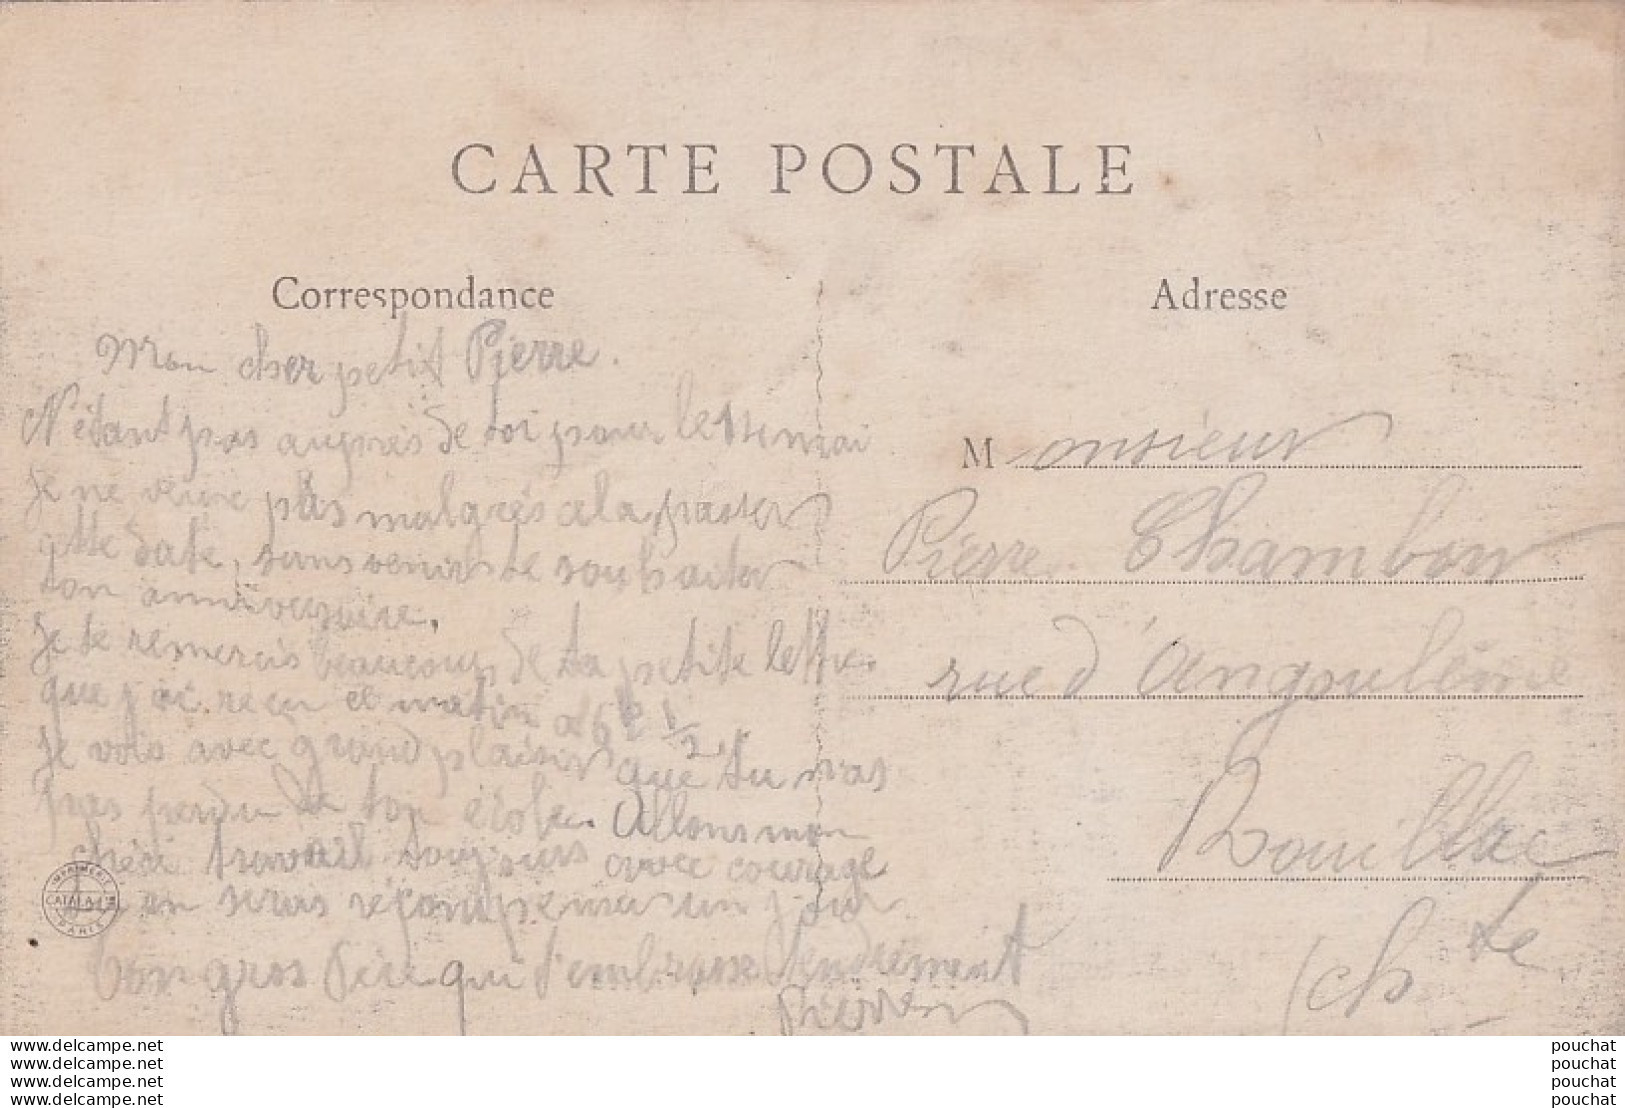 CARTE POSTALE
Correspondance
Adresse
Mon cher petit Pierre.
N'étant pas auprès de toi pour le 11 mai
Je ne veux pas malgrés cela passer
cette date, sans venir te souhaiter
ton anniversaire.
Je te remercis beaucoup de ta petite lettre
que j'ai reçu ce matin à 6 h 1/2.
Je vois avec grand plaisir que tu n'as
pas perdu de ton école. Allons mon
chéri travail toujours avec courage
tu en seras récompensé un jour
Ton gros Père qui t'embrasse tendrement
Pierre
Monsieur
Pierre Chambon
rue d'Angoulême
Rouillac
(Ch te
IMPRIMERIE CATALA PARIS
www.delcampe.net
www.delcampe.net
www.delcampe.net
www.delcampe.net
pouchat
pouchat
pouchat
pouchat